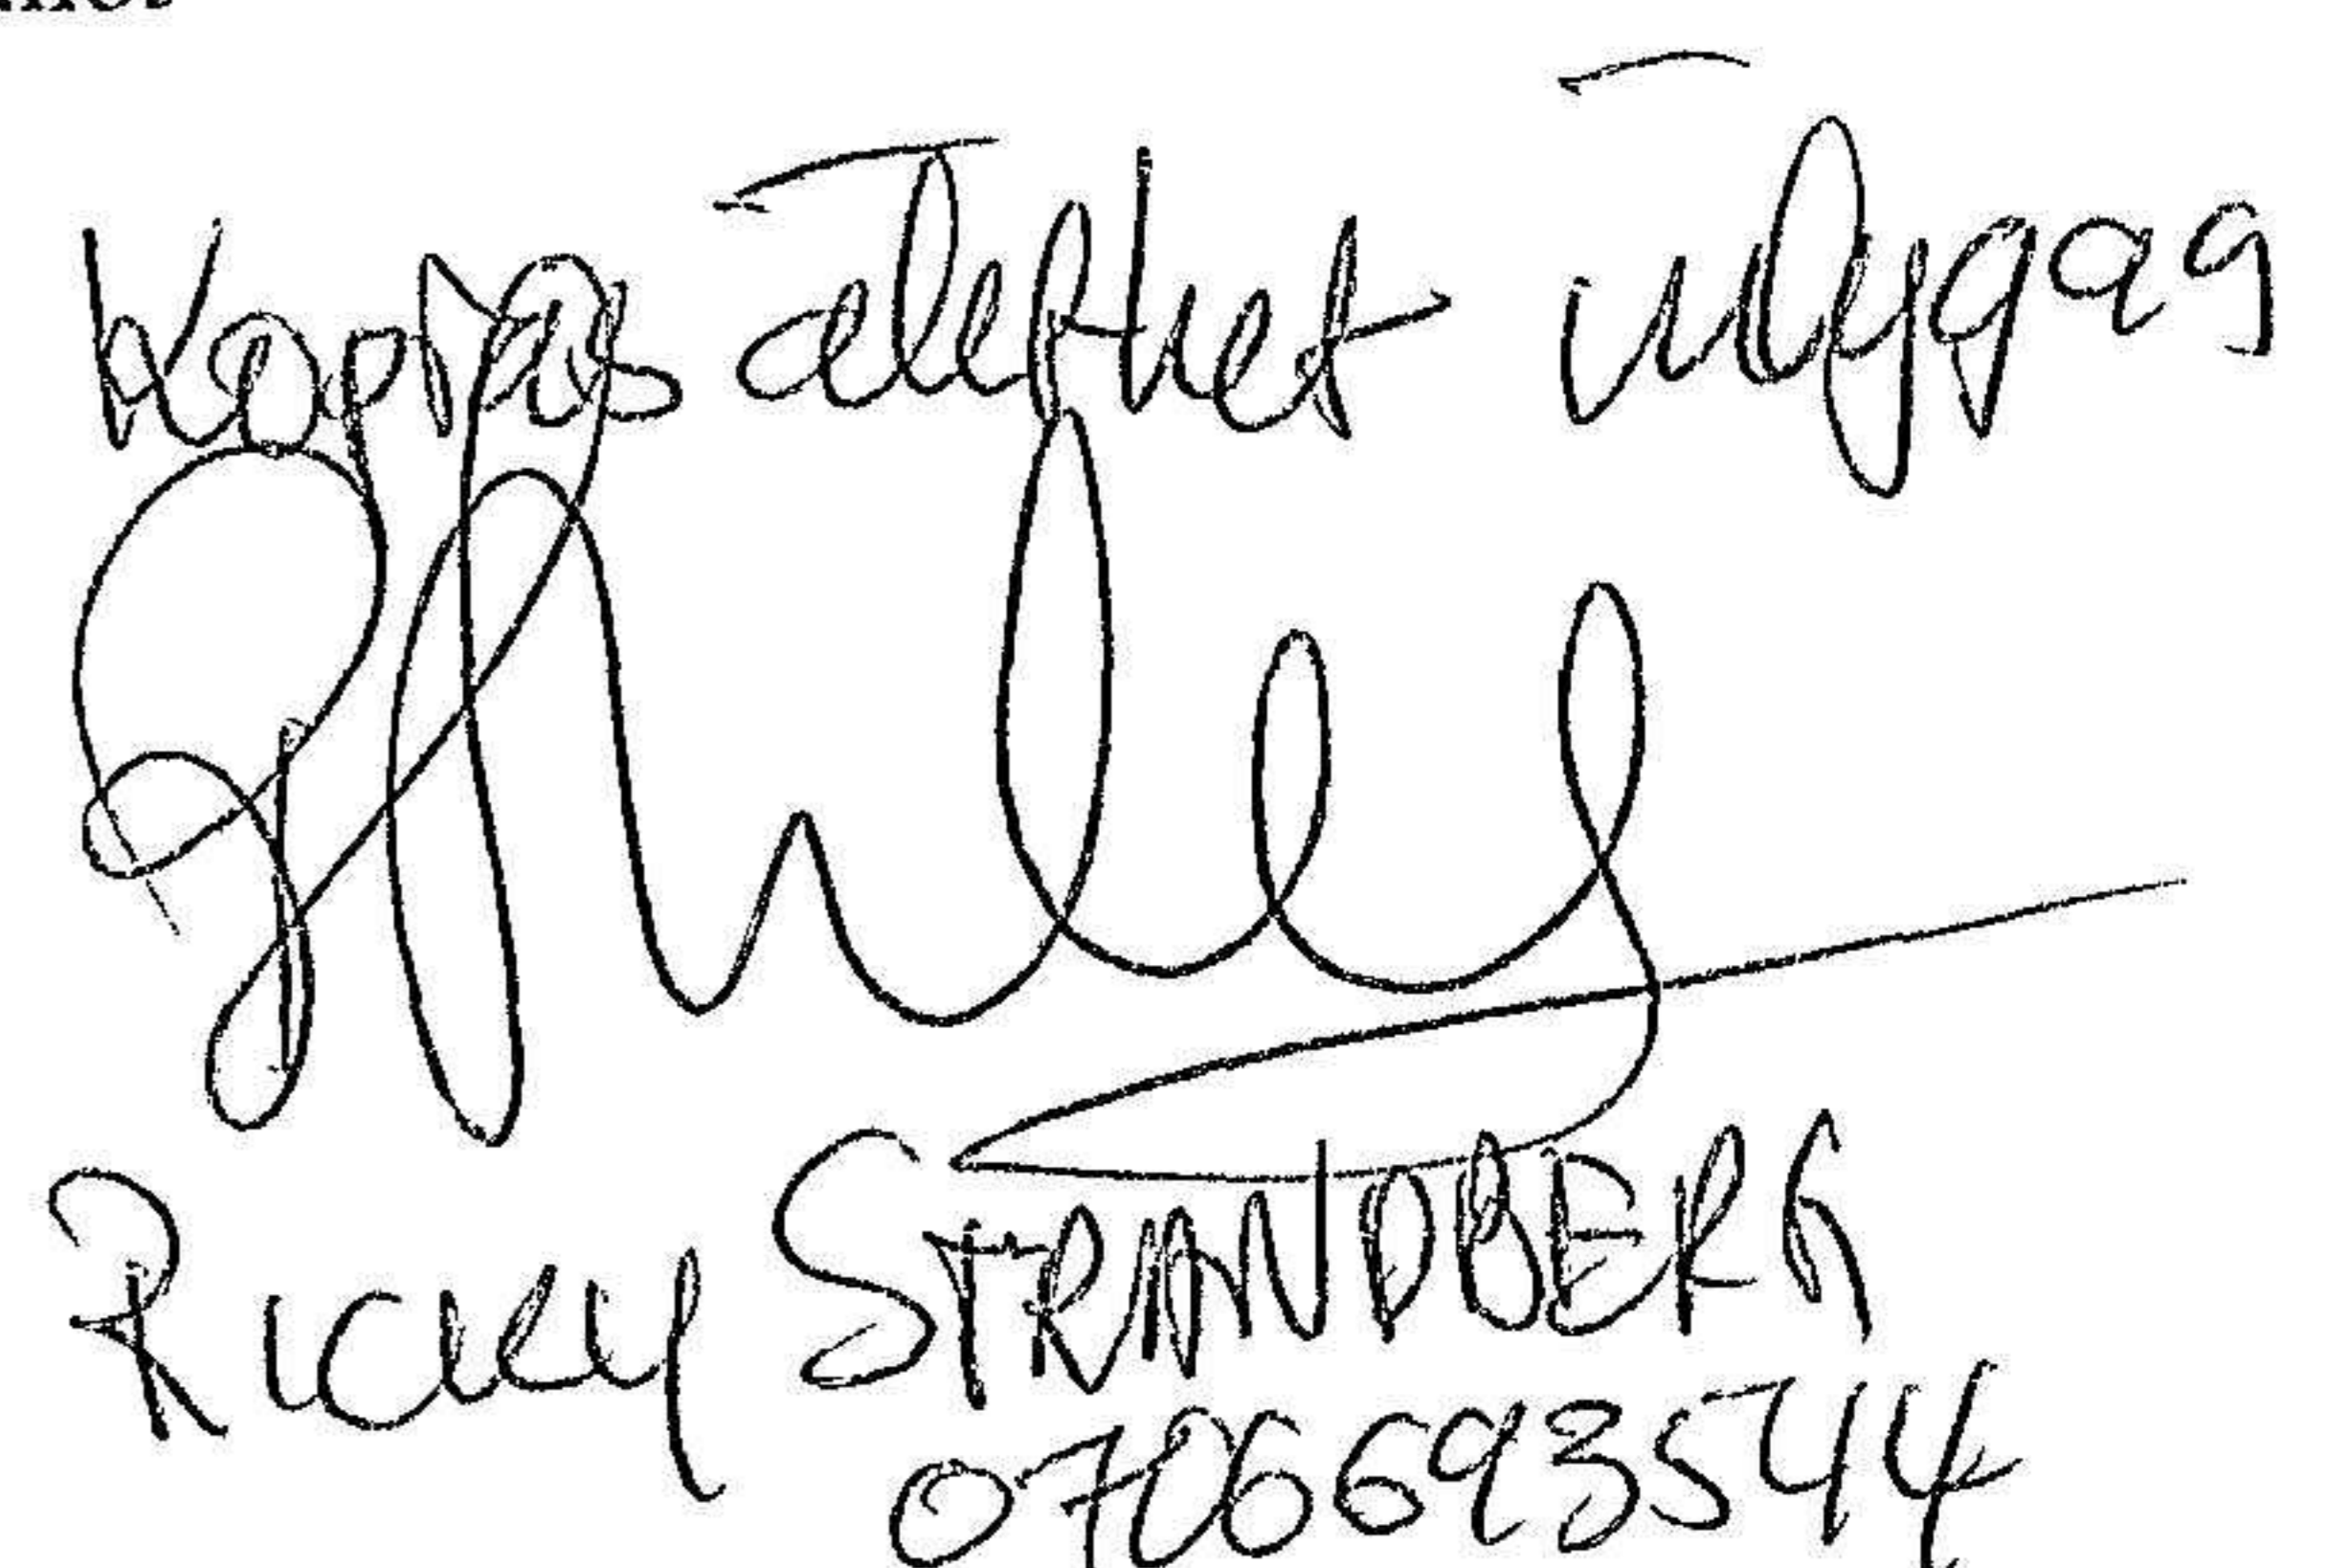 Kopias äkthet intygas
Ricky STRANDBERG
0706693544